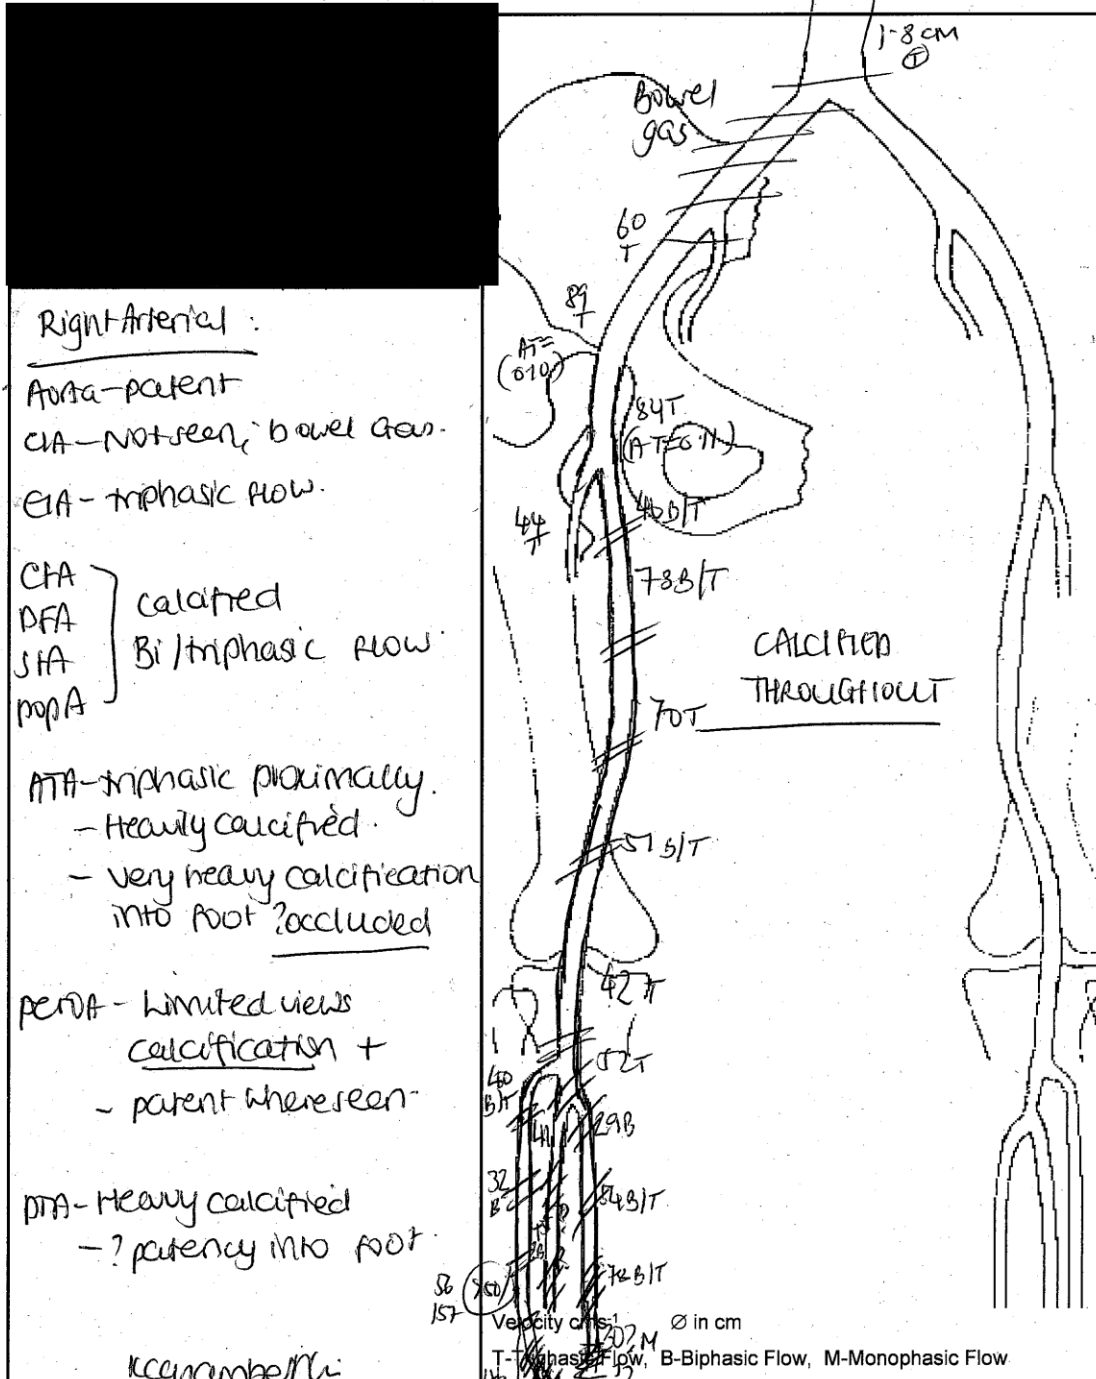 Right Arterial :
Aorta - patent
CIA - Not seen, bowel Gas.
EIA - triphasic flow.
CFA
DFA
SFA
popA
calcified
Bi/triphasic flow
ATA - triphasic proximally.
- Heavily calcified.
- very heavy calcification
into foot ?occluded
peroA - Limited views
calcification +
- patent where seen.
PTA - Heavy calcified
- ? patency into foot.
1.8 cm
T
Bowel
gas
60
T
89
T
AT=
(010)
84T
46B/T
44
T
78B/T
CALCIFIED
THROUGHOUT
70T
51 B/T
42T
52T
40
B/T
29B
32
B
54B/T
56
157
Velocity cms-1 Ø in cm
T-Triphasic Flow, B-Biphasic Flow, M-Monophasic Flow